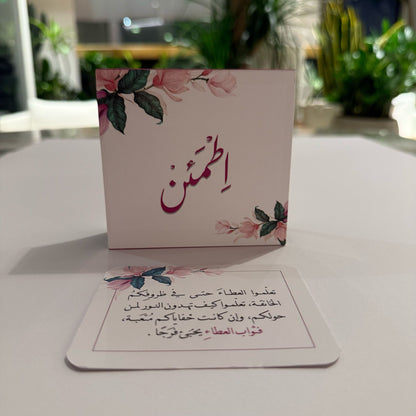 اِطْمَئِنْ
تعلّموا العطاءَ حتى في ظروفكم
الخانقة، تعلّموا كيف تهدون النور لمن
حولكم، وإن كانت خفاياكم مُتعبة،
فثواب العطاءِ يحيي فَرَجًا.